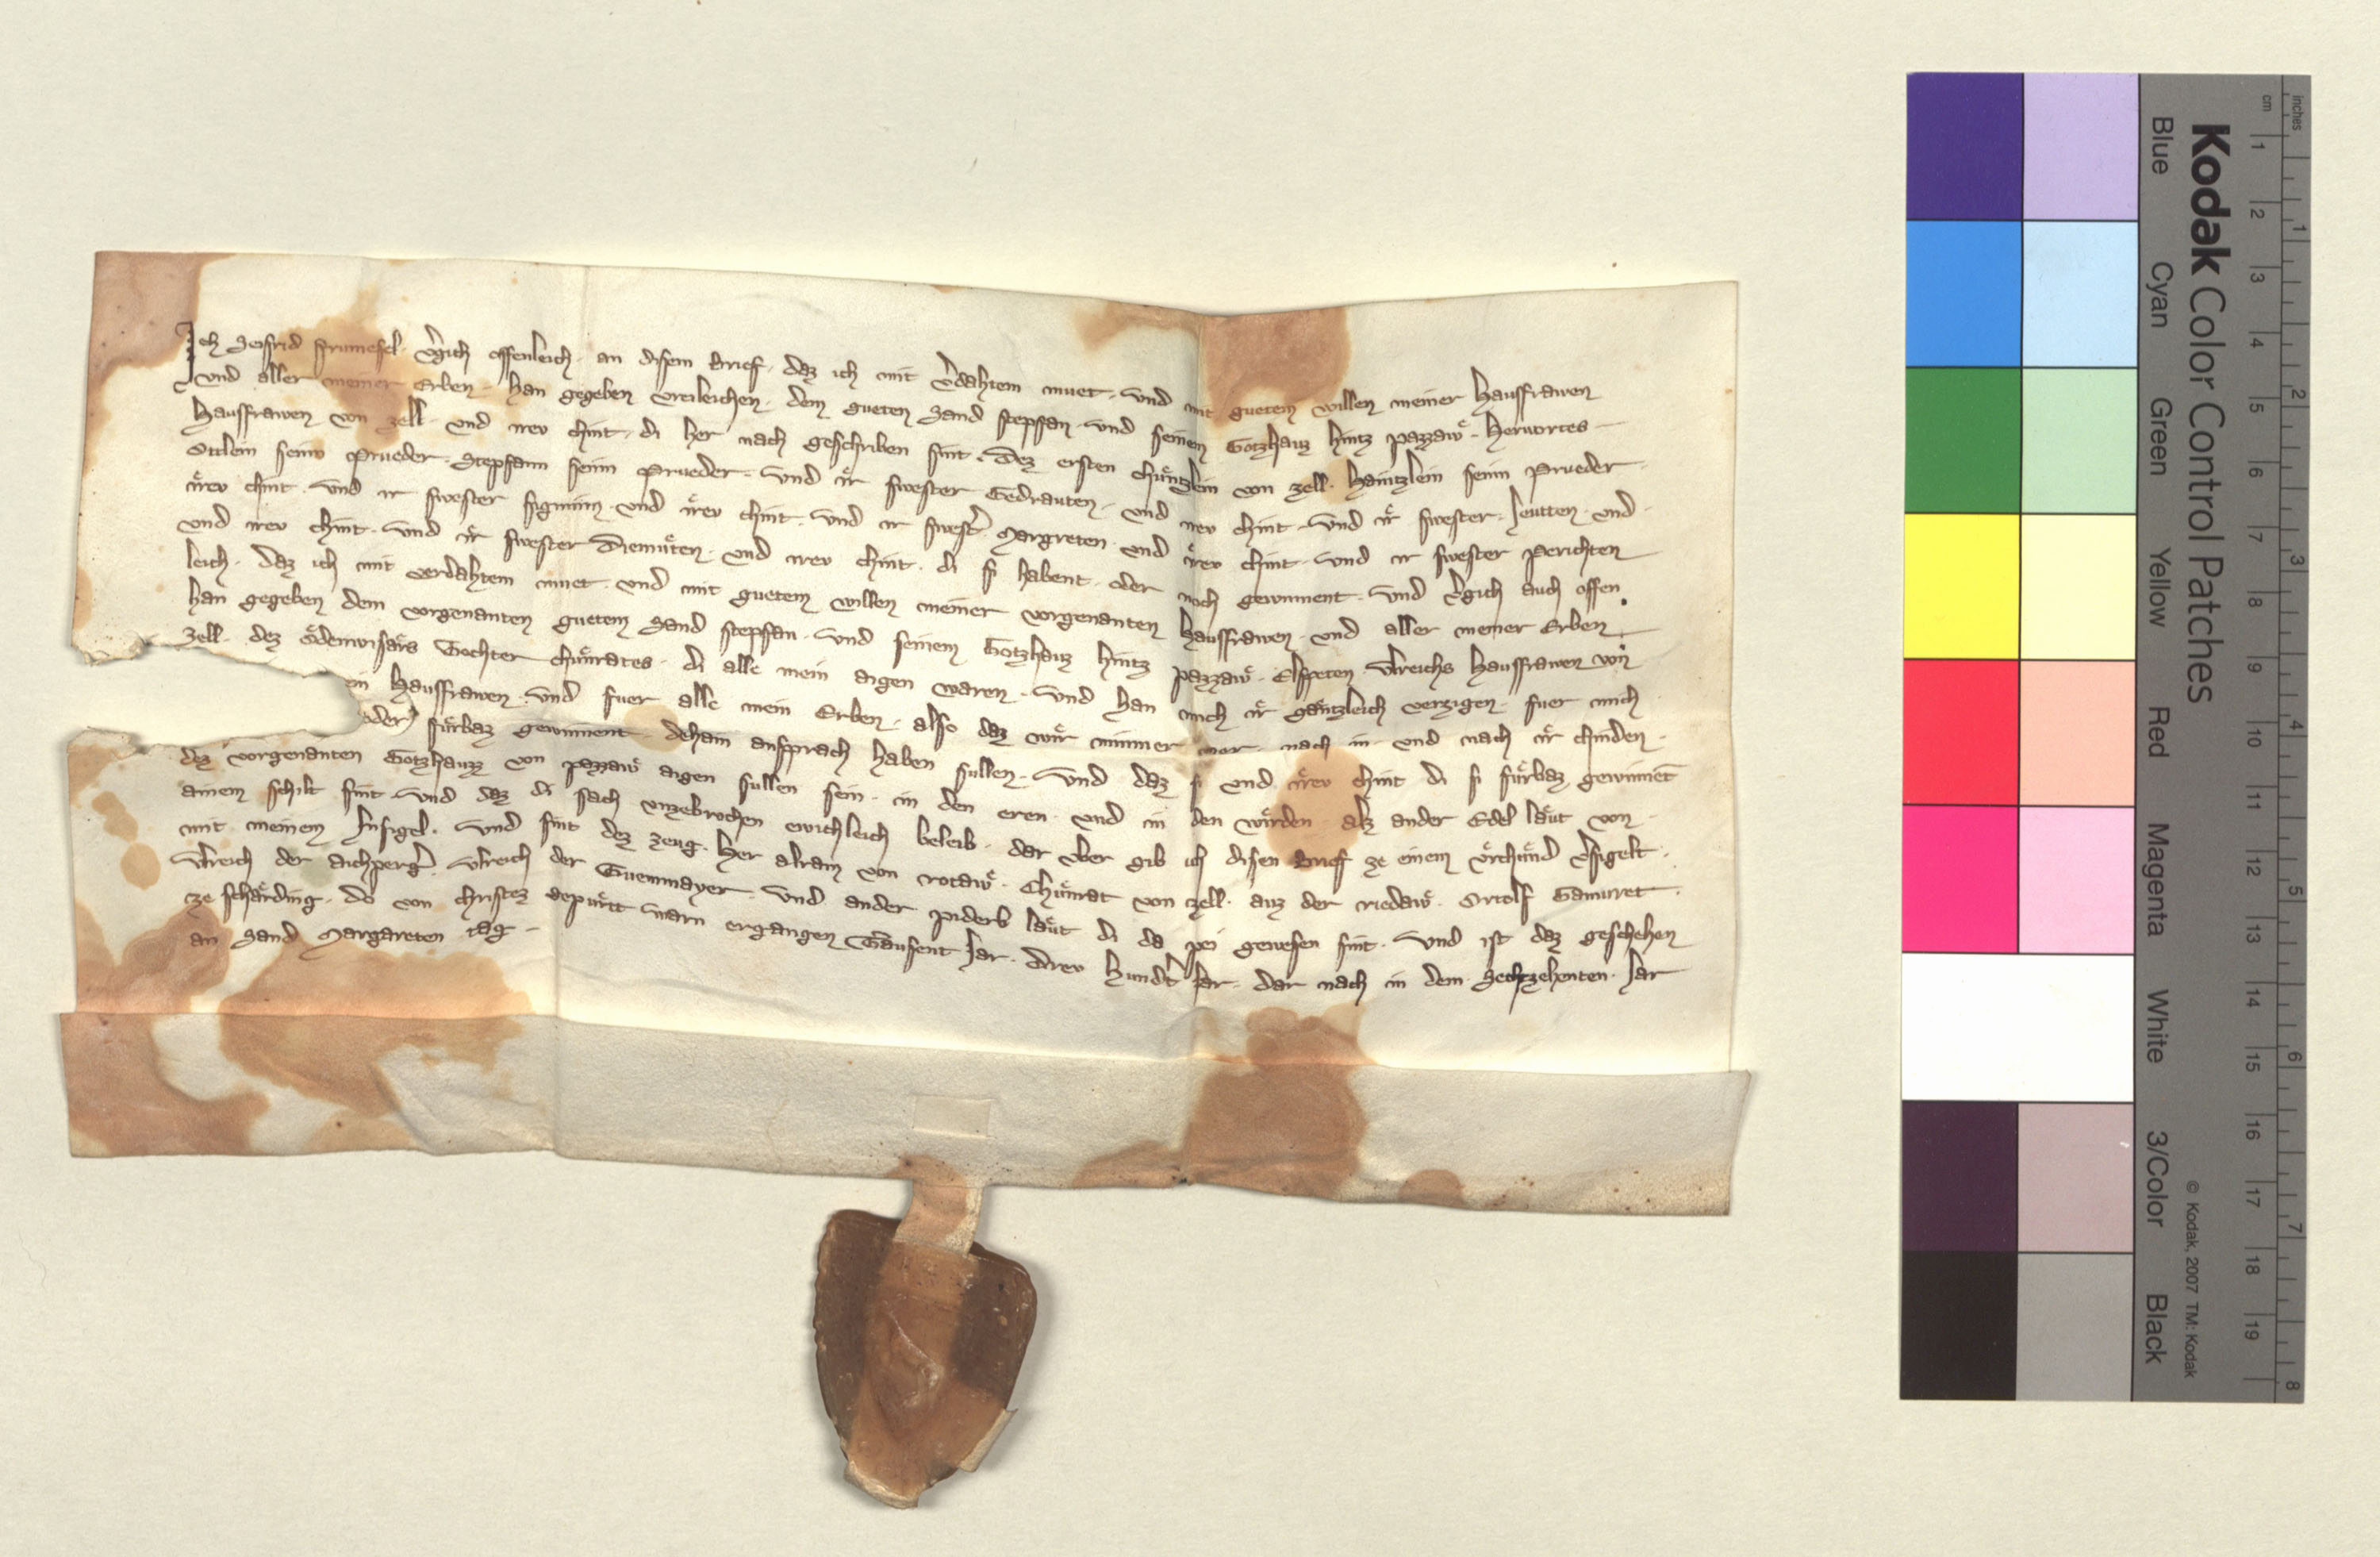 Ich Seifrid prumesel. v'gich offenleich. an disem brief. daz ich mit v'dahtem muet. und mit guetem willen meiner hausfrawen
und aller meiner Erben. han gegeben vreileichen. dem gueten Sand stepfan. und seinem Gotzhauz hintz pazzaẘ. herwortes
hausfrawen von zell. und irev chint. di her nach geschriben sint. dez ersten chůntzlein von zell. haintzlein seinn prueder
Ottlein seinn prueder. Stepfann seinn prueder. und ir swester Gedrauten. und irev chint. und ir swester. Jeutten. und
irev chint. und ir swester sigunin. und irev chint. und ir swest' Margreten. und irev chint. und ir swester perichten
und irev chint. und ir swester Diemůten. und irev chint. di si habent. oder noch gewinnent. und v'gich auch offen
leich. daz ich mit verdahtem muet. und mit guetem willen meiner vorgenanten hausfrawen. und aller meiner Erben
han gegeben dem vorgenanten guetem Sand stepfan. und seinem Gotzhauz hintz pazzaẘ. Elspeten Ulreichs hausfrawen von
zell. dez Ödenwisårs Tochter chůnrates. di alle mein aigen waren. und han mich ir gåntzleich verzigen. fuer mich
ein hausfrawen. und fuer alle mein Erben. also daz wir nimmer mer. nach in. und nach ir chinden.
oder fůrbaz gewinnent. dehain ansprach haben sullen. und daz si und irev chint di si fůrbaz gewinnēt
dez vorgenanten Gotzhauzz von pazzaẘ aigen sullen sein. in den eren. und in den wirden. alz ander Edel låut von
ainem schilt sint. und daz di sach unzebrochen ewichleich beleib. dar vber gib ich disen brief ze einem vrchůnd v'sigelt.
mit meinem Insigel. und sint dez zeug. her alram von rotaẘ. Chůnrat von zell. auz der riedaẘ. Ortolf Gamuret.
Ulreich der aichperg'. Ulreich der Guenmayer. und ander piderb låut di da pei gewesen sint. und ist daz geschehen
ze schårding. do von christez gepůrtt warn ergangen Tausent Jar. drev hund't Jar. dar nach in dem Sechzehenten. Jar
an Sand Margareten tag.
Kodak Color Control Patches
Blue Cyan Green Yellow Red Magenta White 3/Color Black
© Kodak, 2007 TM: Kodak
cm 1 2 3 4 5 6 7 8 9 10 11 12 13 14 15 16 17 18 19
inches 1 2 3 4 5 6 7 8